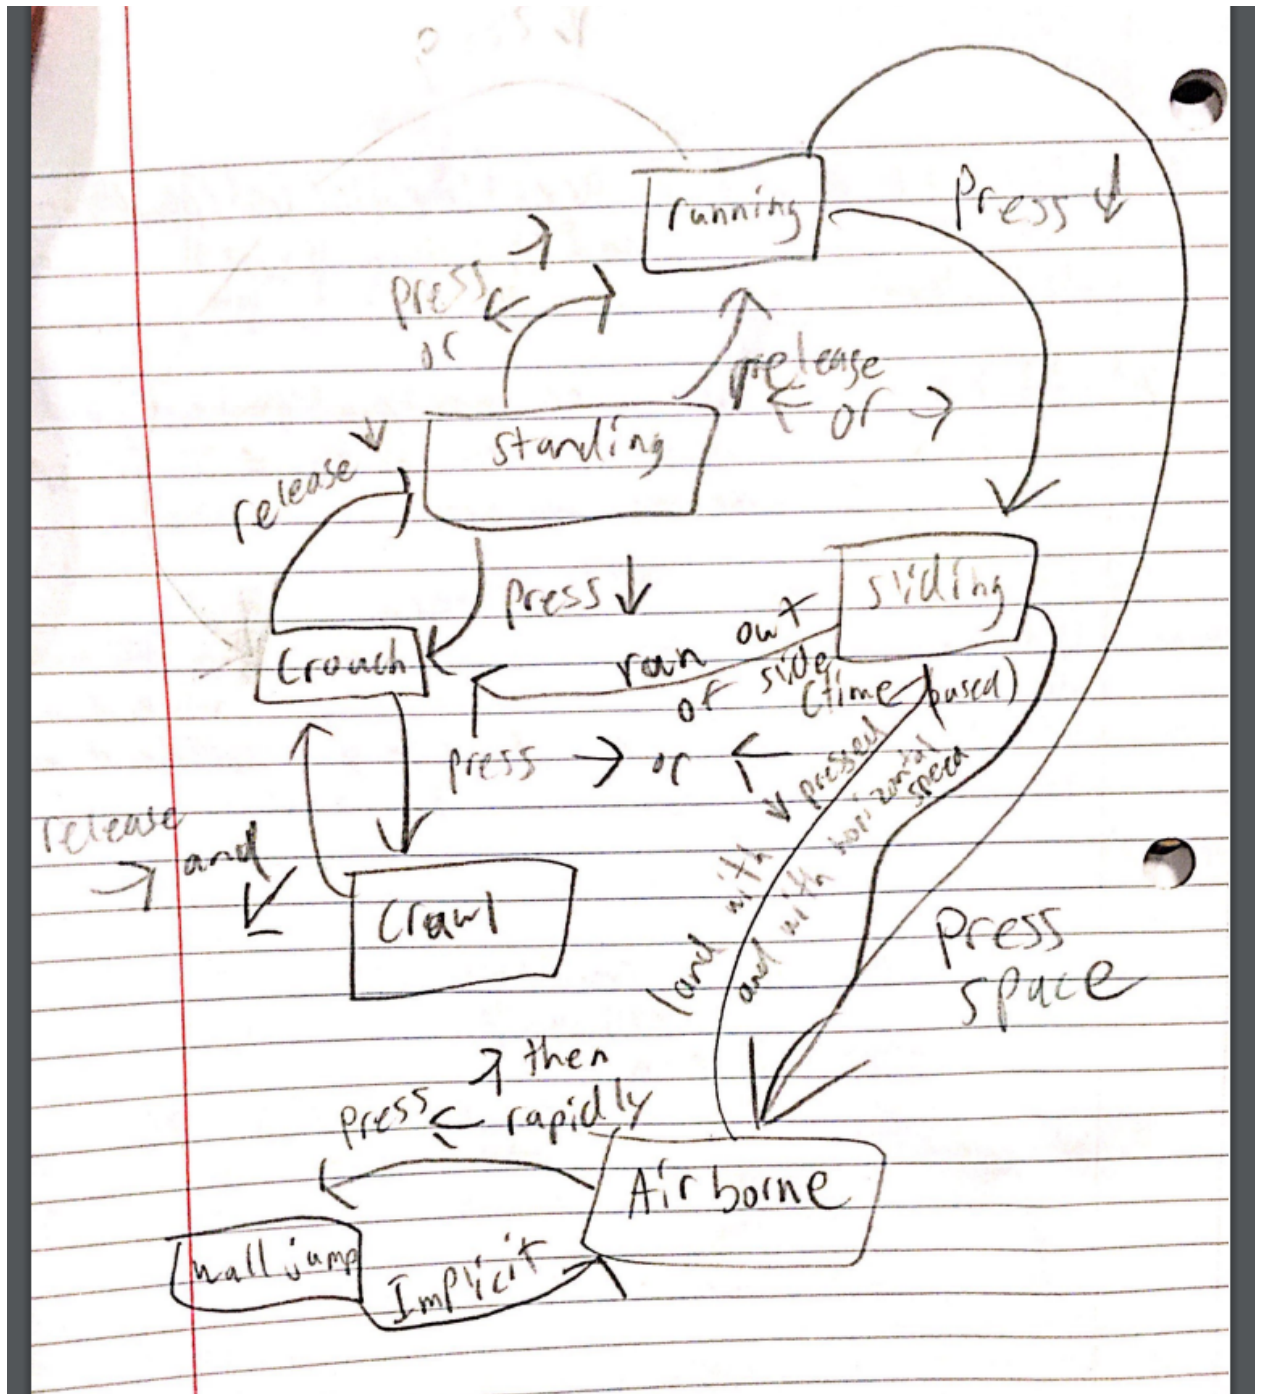 running
Press ↓
press ← →
or
release
← or →
standing
release ↓
press ↓
sliding
Crouch
run out
of slide
(time based)
press → or ←
release
→ and
←
Crawl
land with ↓ pressed
and with horizontal
speed
Press
space
→ then
press ← rapidly
Airborne
wall jump
Implicit